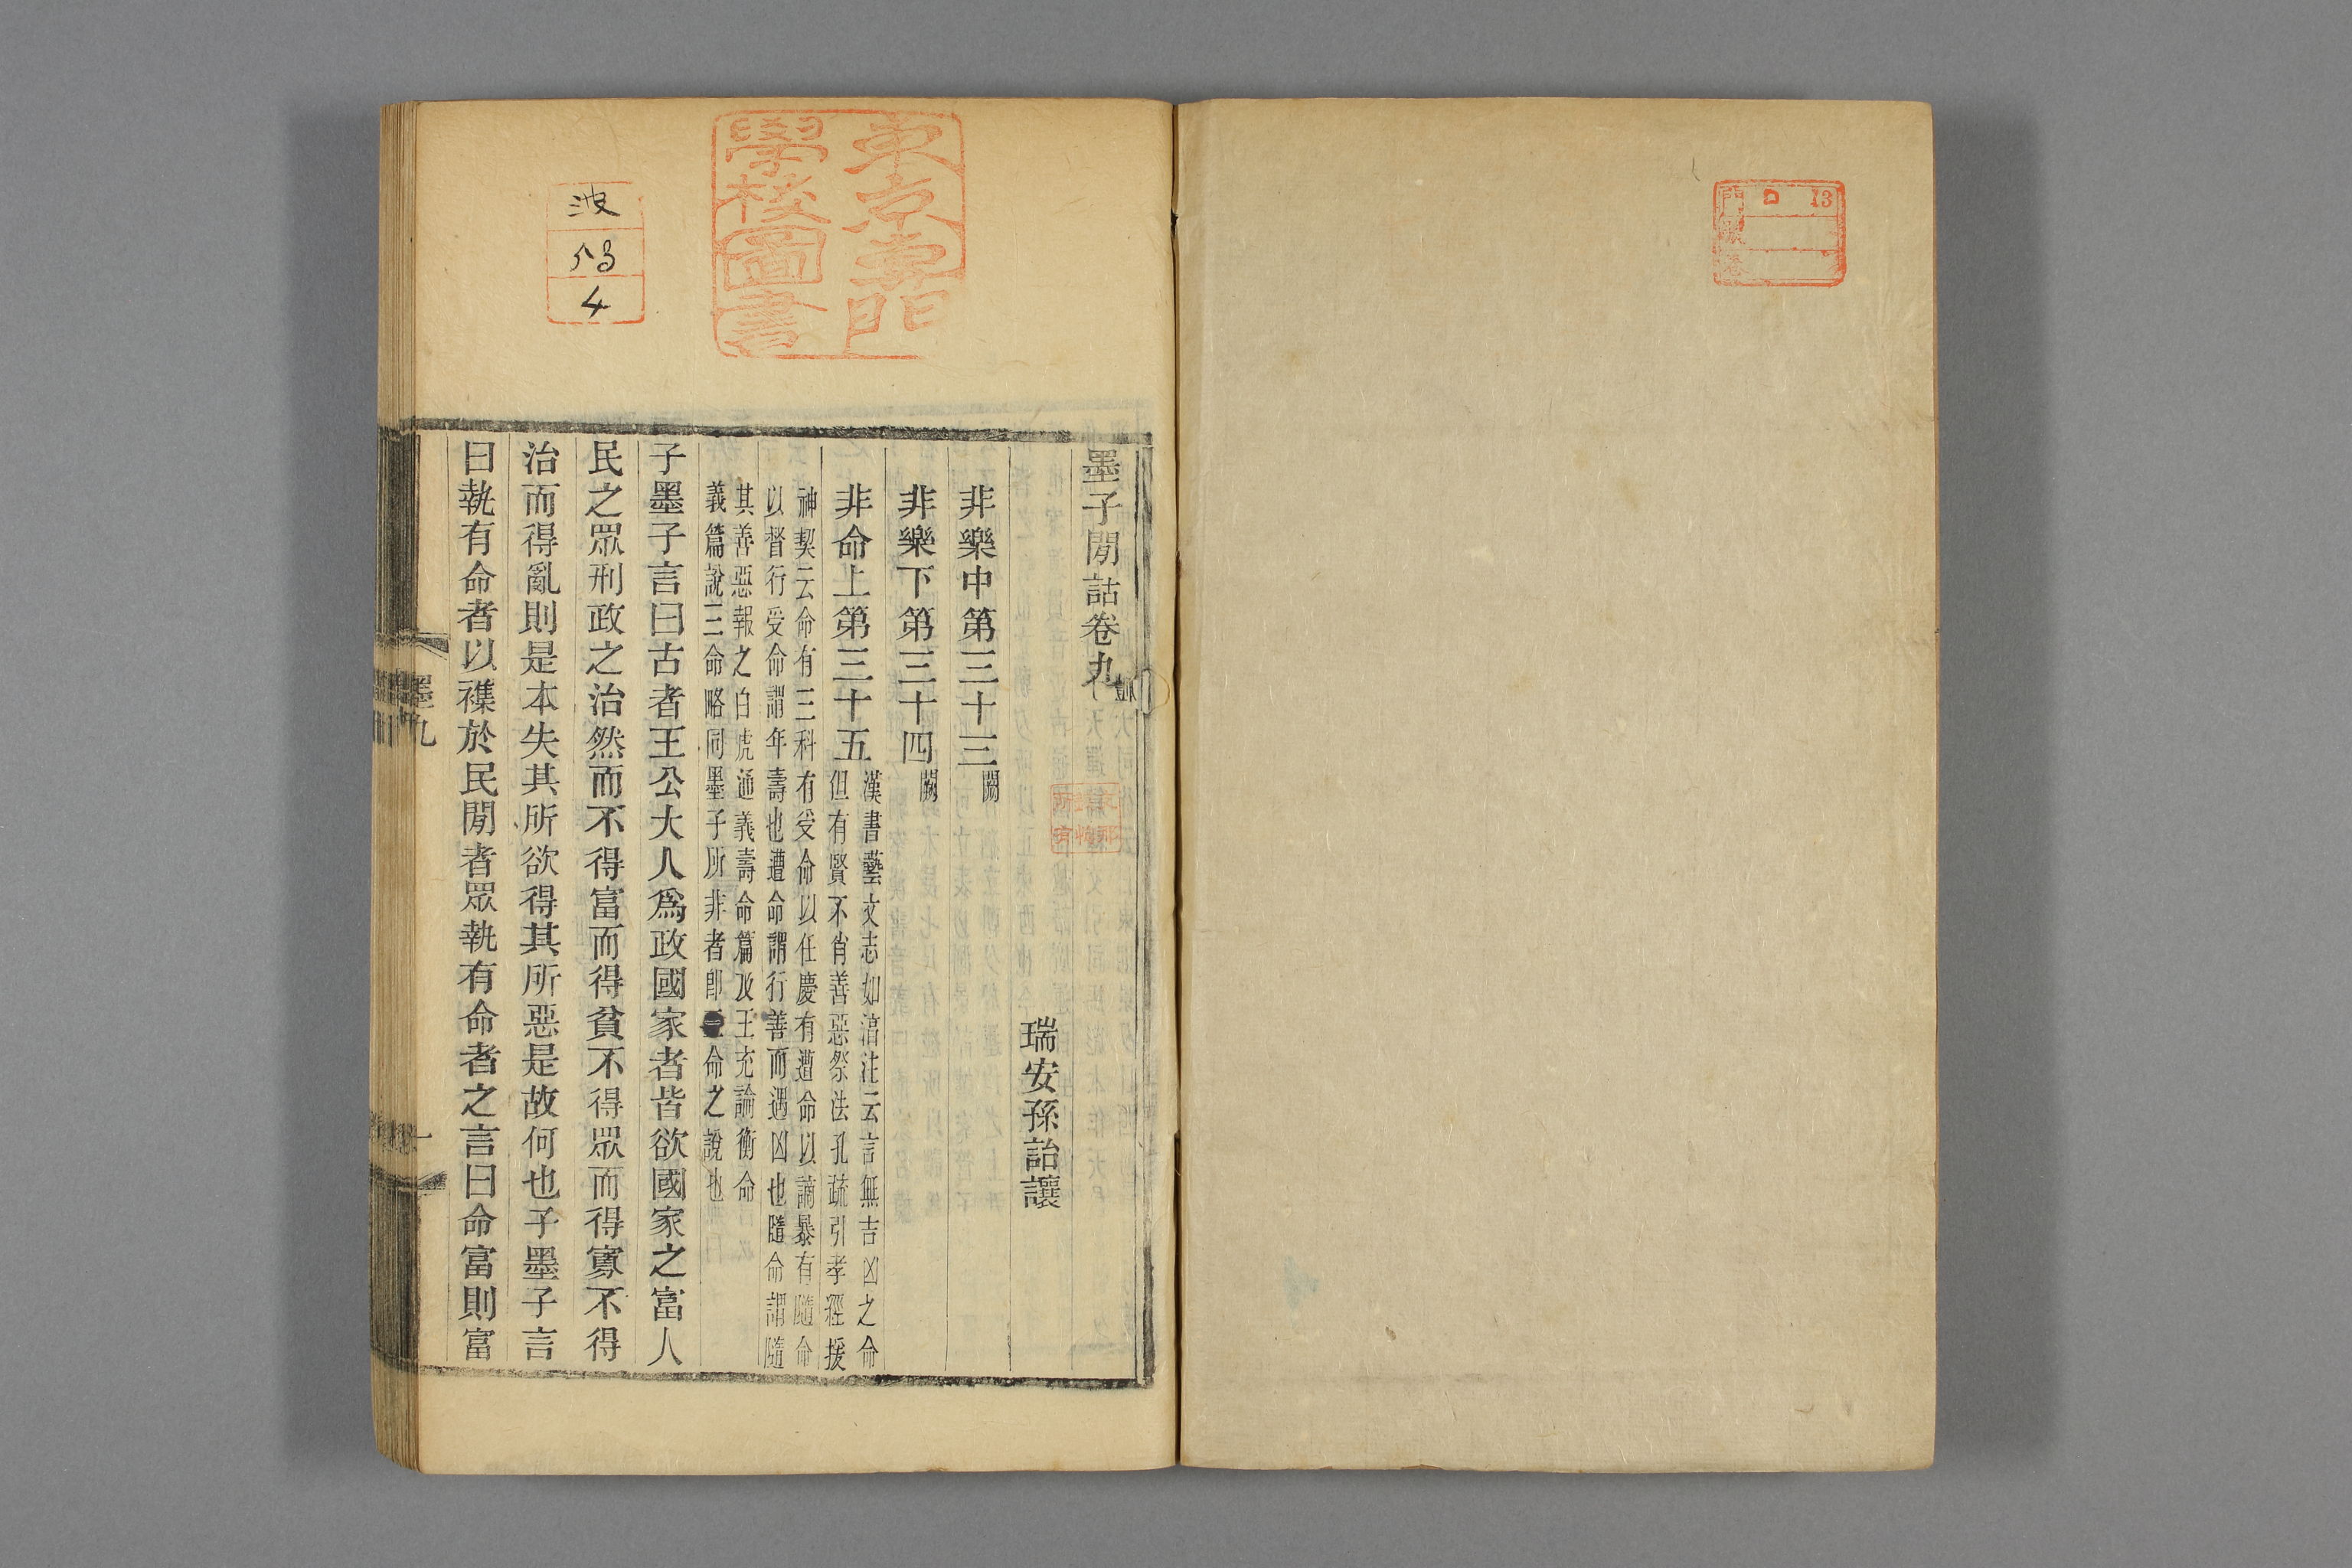 13
東京專門
學校圖書
波
53
4
墨子閒詁卷九
瑞安孫詒讓
非樂中第三十三闕
非樂下第三十四闕
非命上第三十五
漢書藝文志如湻注云言無吉凶之命
但有賢不肖善惡祭法孔疏引孝經援
神契云命有三科有受命以任慶有遭命以謫暴有隨命
以督行受命謂年壽也遭命謂行善而遇凶也隨命謂隨
其善惡報之白虎通義壽命篇及王充論衡命
義篇說三命略同墨子所非者卽三命之說也
子墨子言曰古者王公大人爲政國家者皆欲國家之富人
民之眾刑政之治然而不得富而得貧不得眾而得寡不得
治而得亂則是本失其所欲得其所惡是故何也子墨子言
曰執有命者以襍於民閒者眾執有命者之言曰命富則富
墨九
一